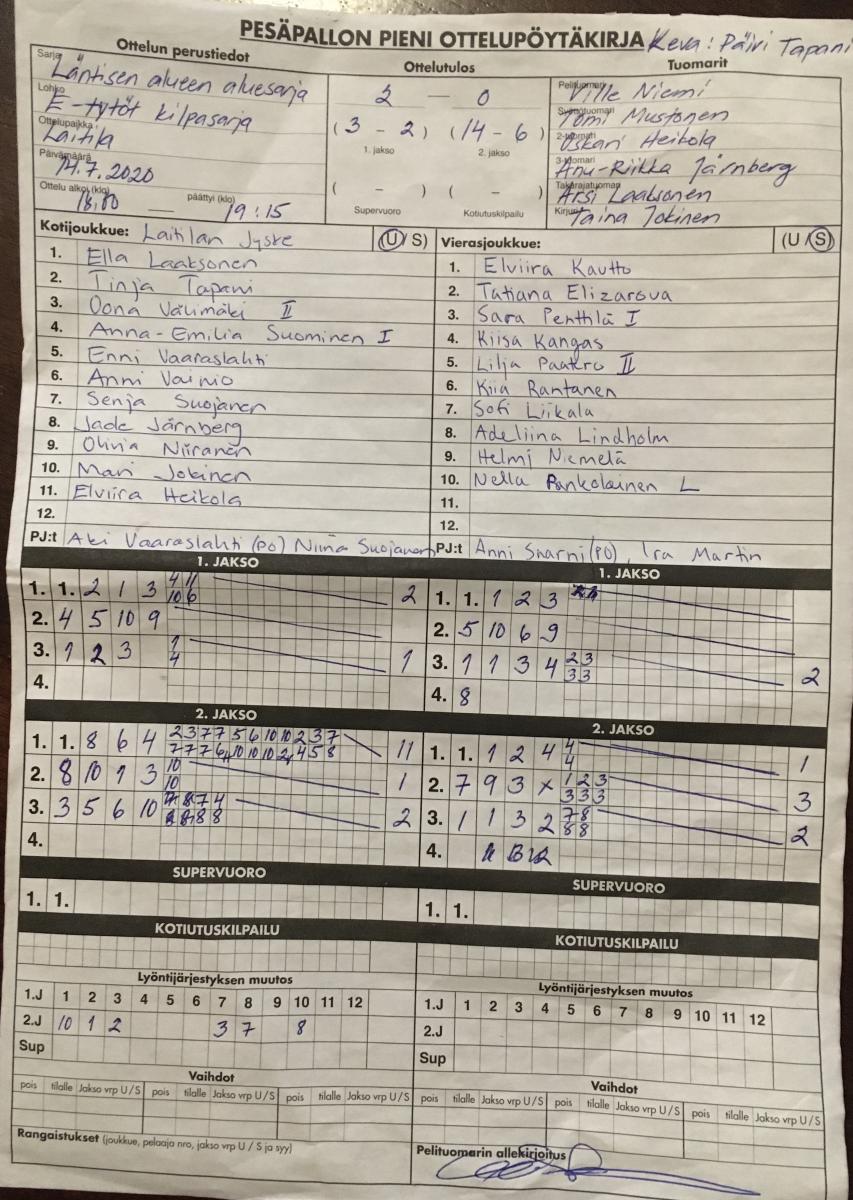 PESÄPALLON PIENI OTTELUPÖYTÄKIRJA Keva: Päivi Tapani
Ottelun perustiedot Ottelutulos Tuomarit
Sarja Läntisen alueen aluesarja
Lohko E-tytöt kilpasarja
Ottelupaikka Laitila
Päivämäärä 14.7.2020
Ottelu alkoi (klo) 18.00 päättyi (klo) 19:15
2 — 0
(3 - 2) (14 - 6)
1. jakso 2. jakso
( - ) ( - )
Supervuoro Kotiutuskilpailu
Pelituomari Ville Niemi
Syöttötuomari Tomi Mustonen
2-tuomari Oskari Heikola
3-tuomari Anu-Riikka Järnberg
Takarajatuomari Arsi Laaksonen
Kirjuri Taina Jokinen
Kotijoukkue: Laitilan Jyske (U/S)
1. Ella Laaksonen
2. Tinja Tapani
3. Oona Välimäki II
4. Anna-Emilia Suominen I
5. Enni Vaaraslahti
6. Anni Vainio
7. Senja Suojanen
8. Jade Järnberg
9. Olivia Niiranen
10. Mari Jokinen
11. Elviira Heikola
12.
PJ:t Aki Vaaraslahti (PO) Niina Suojanen
Vierasjoukkue: (U/S)
1. Elviira Kautto
2. Tatiana Elizarova
3. Sara Penttilä I
4. Kiisa Kangas
5. Lilja Paakro II
6. Kiia Rantanen
7. Sofi Liikala
8. Adeliina Lindholm
9. Helmi Niemelä
10. Nella Pankolainen L
11.
12.
PJ:t Anni Snarni (PO), Ira Martin
1. JAKSO
1. 1. 2 1 3 4 11 2
10 6
2. 4 5 10 9
3. 1 2 3 1
4
4.
1. JAKSO
1. 1. 1 2 3
2. 5 10 6 9
3. 1 1 3 4 2 3 2
3 3
4. 8
2. JAKSO
1. 1. 8 6 4 2 3 7 7 5 6 10 10 2 3 7 11
7 7 7 6 10 10 10 2 4 5 8
2. 8 10 1 3 10 1
10
3. 3 5 6 10 8 7 4 2
8 8 8
4.
2. JAKSO
1. 1. 1 2 4 4 1
4
2. 7 9 3 x 1 2 3 3
3 3 3
3. 1 1 3 2 7 8 2
8 8
4.
SUPERVUORO
1. 1.
SUPERVUORO
1. 1.
KOTIUTUSKILPAILU
KOTIUTUSKILPAILU
Lyöntijärjestyksen muutos
1.J 1 2 3 4 5 6 7 8 9 10 11 12
2.J 10 1 2 3 7 8
Sup
Lyöntijärjestyksen muutos
1.J 1 2 3 4 5 6 7 8 9 10 11 12
2.J
Sup
Vaihdot
pois tilalle Jakso vrp U/S pois tilalle Jakso vrp U/S pois tilalle Jakso vrp U/S
Vaihdot
pois tilalle Jakso vrp U/S pois tilalle Jakso vrp U/S pois tilalle Jakso vrp U/S
Rangaistukset (joukkue, pelaaja nro, jakso vrp U / S ja syy)
Pelituomarin allekirjoitus